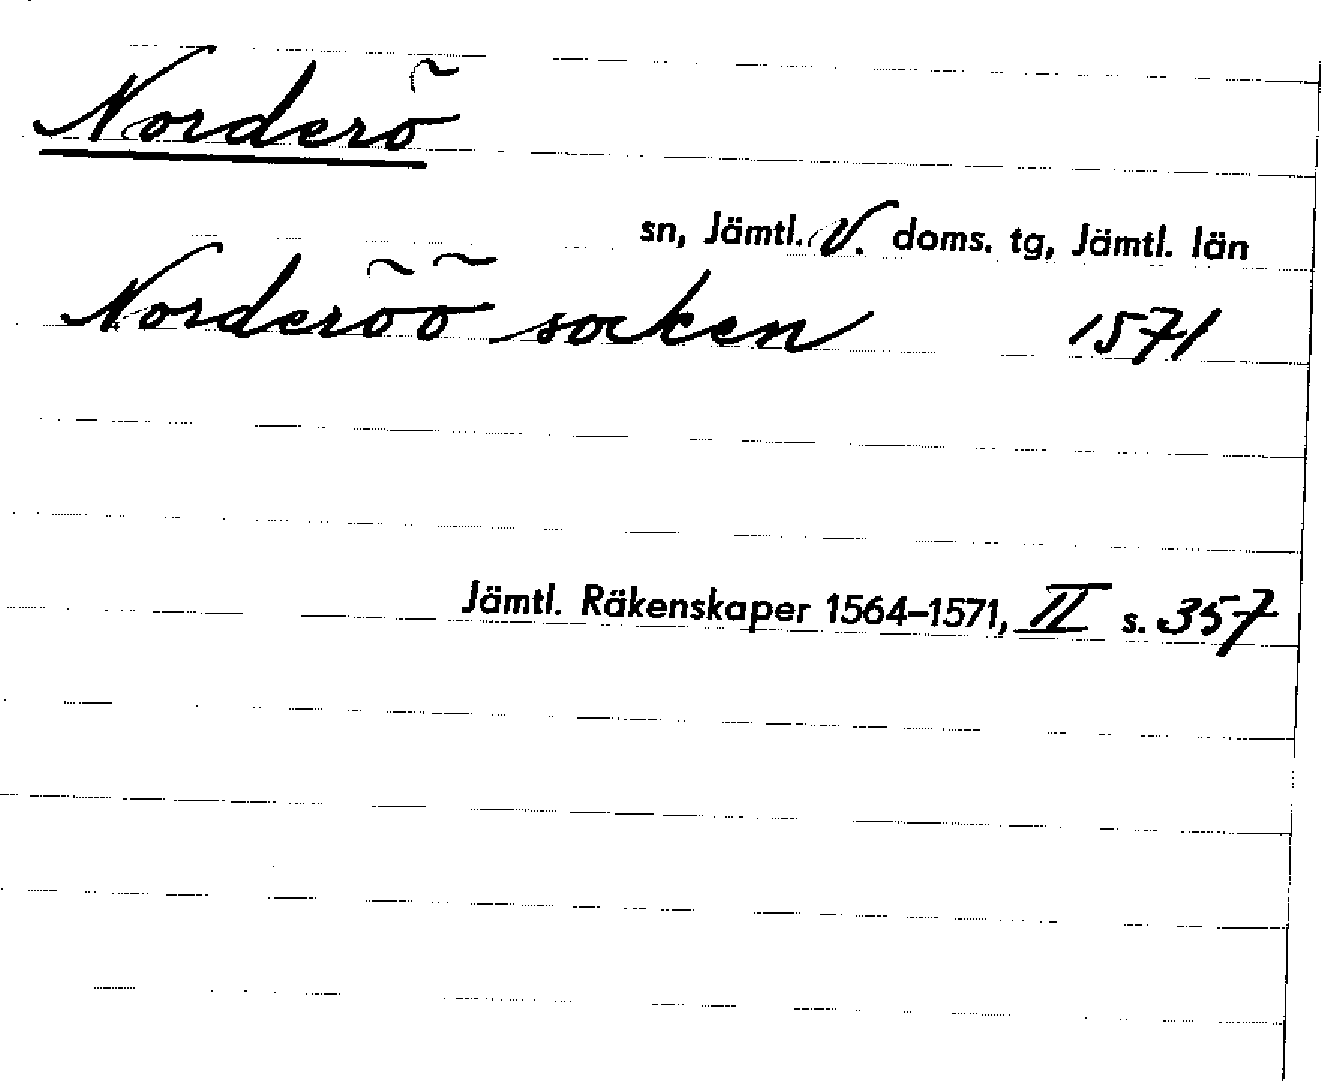 Norderö
sn, Jämtl. V. doms. tg, Jämtl. län
Norderöö socken 1571
Jämtl. Räkenskaper 1564–1571, II s. 357